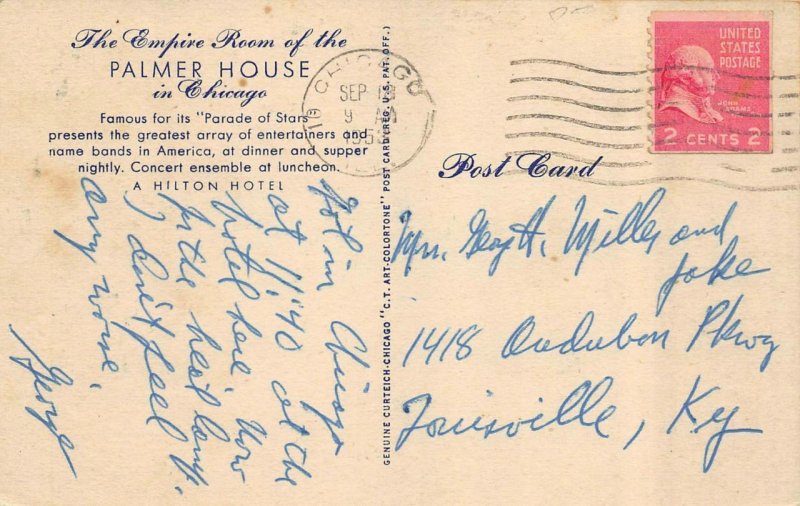 The Empire Room of the
PALMER HOUSE
in Chicago
Famous for its "Parade of Stars"
presents the greatest array of entertainers and
name bands in America, at dinner and supper
nightly. Concert ensemble at luncheon.
A HILTON HOTEL
Got in Chicago
at 11:40 at the
hotel here. Now
for the
I don't feel
any worse.
George
GENUINE CURTEICH-CHICAGO "C.T. ART-COLORTONE" POST CARD (REG. U.S. PAT. OFF.)
CHICAGO
SEP
9 AM
UNITED
STATES
POSTAGE
JOHN
ADAMS
2 CENTS 2
Post Card
Mrs. Geo. H. Miller and
Jake
1418 Audubon Pkwy
Louisville, Ky